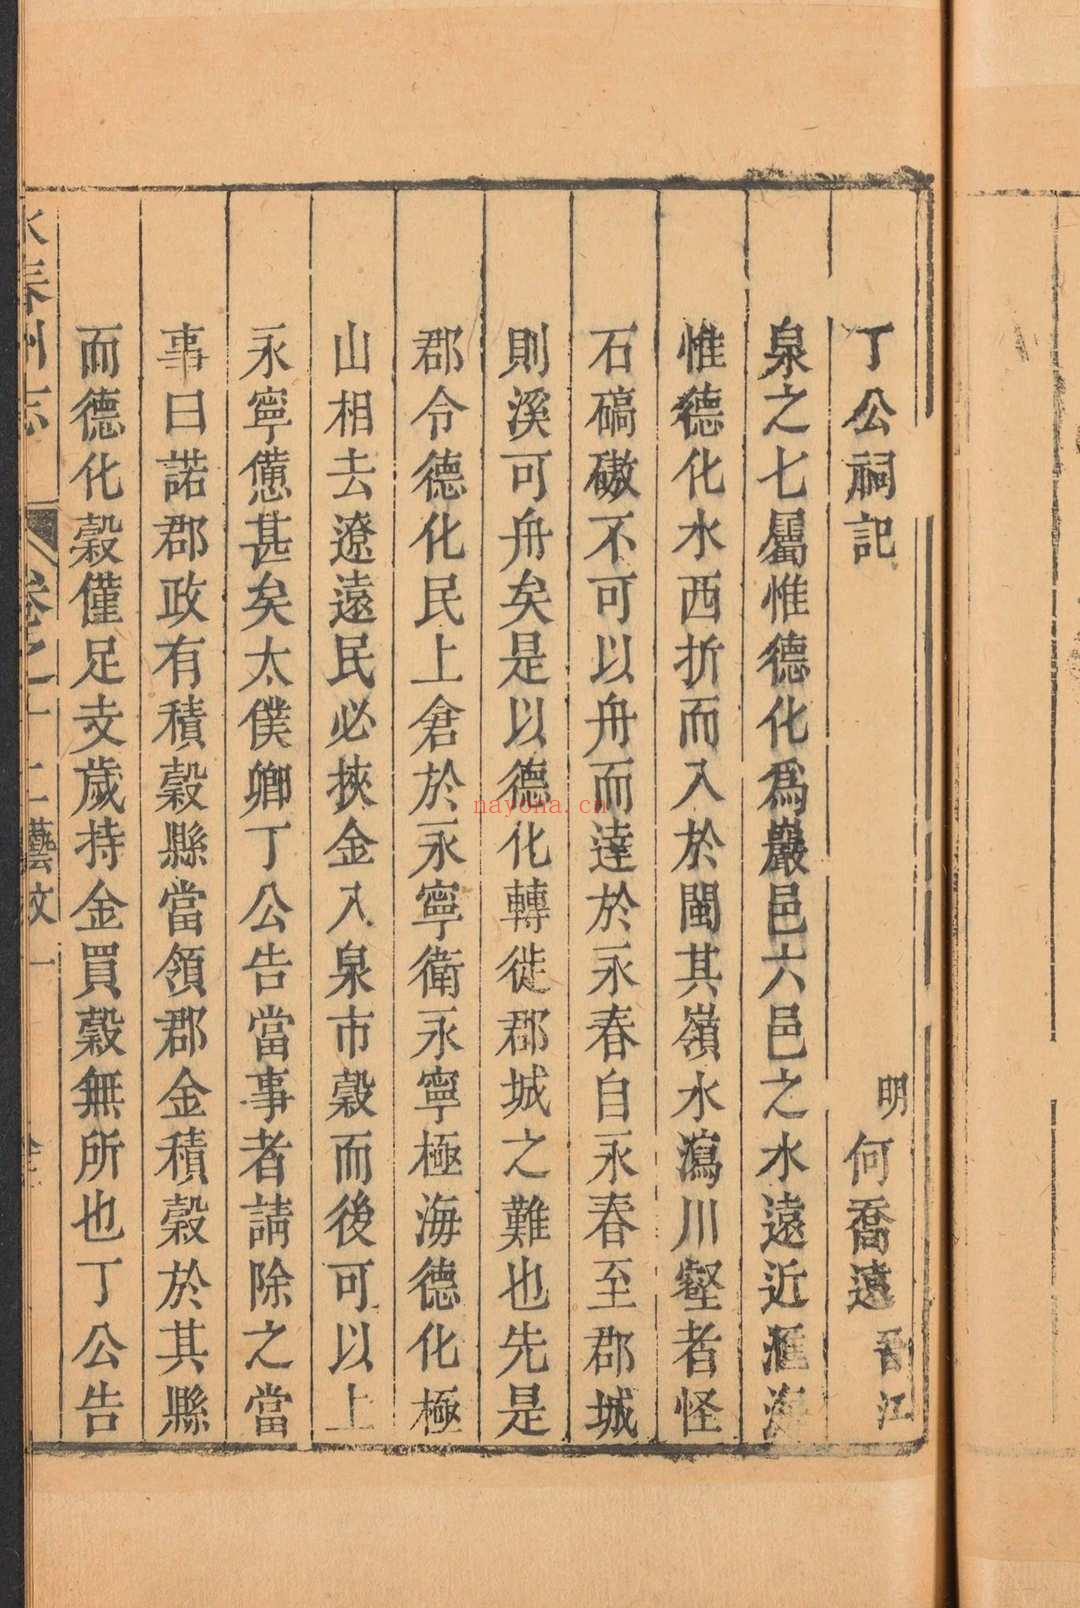 丁公祠記
明何喬遠晉江
泉之七屬惟德化爲巖邑六邑之水遠近滙海
惟德化水西折而入於閩其嶺水瀉川壑者怪
石碻磝不可以舟而達於永春自永春至郡城
則溪可舟矣是以德化轉徙郡城之難也先是
郡令德化民上倉於永寧衛永寧極海德化極
山相去遼遠民必挾金入泉市穀而後可以上
永寧憊甚矣太僕卿丁公告當事者請除之當
事曰諾郡政有積穀縣當領郡金積穀於其縣
而德化穀僅足支歲持金買穀無所也丁公告
永春州志 卷之十二藝文一
nayona.cn